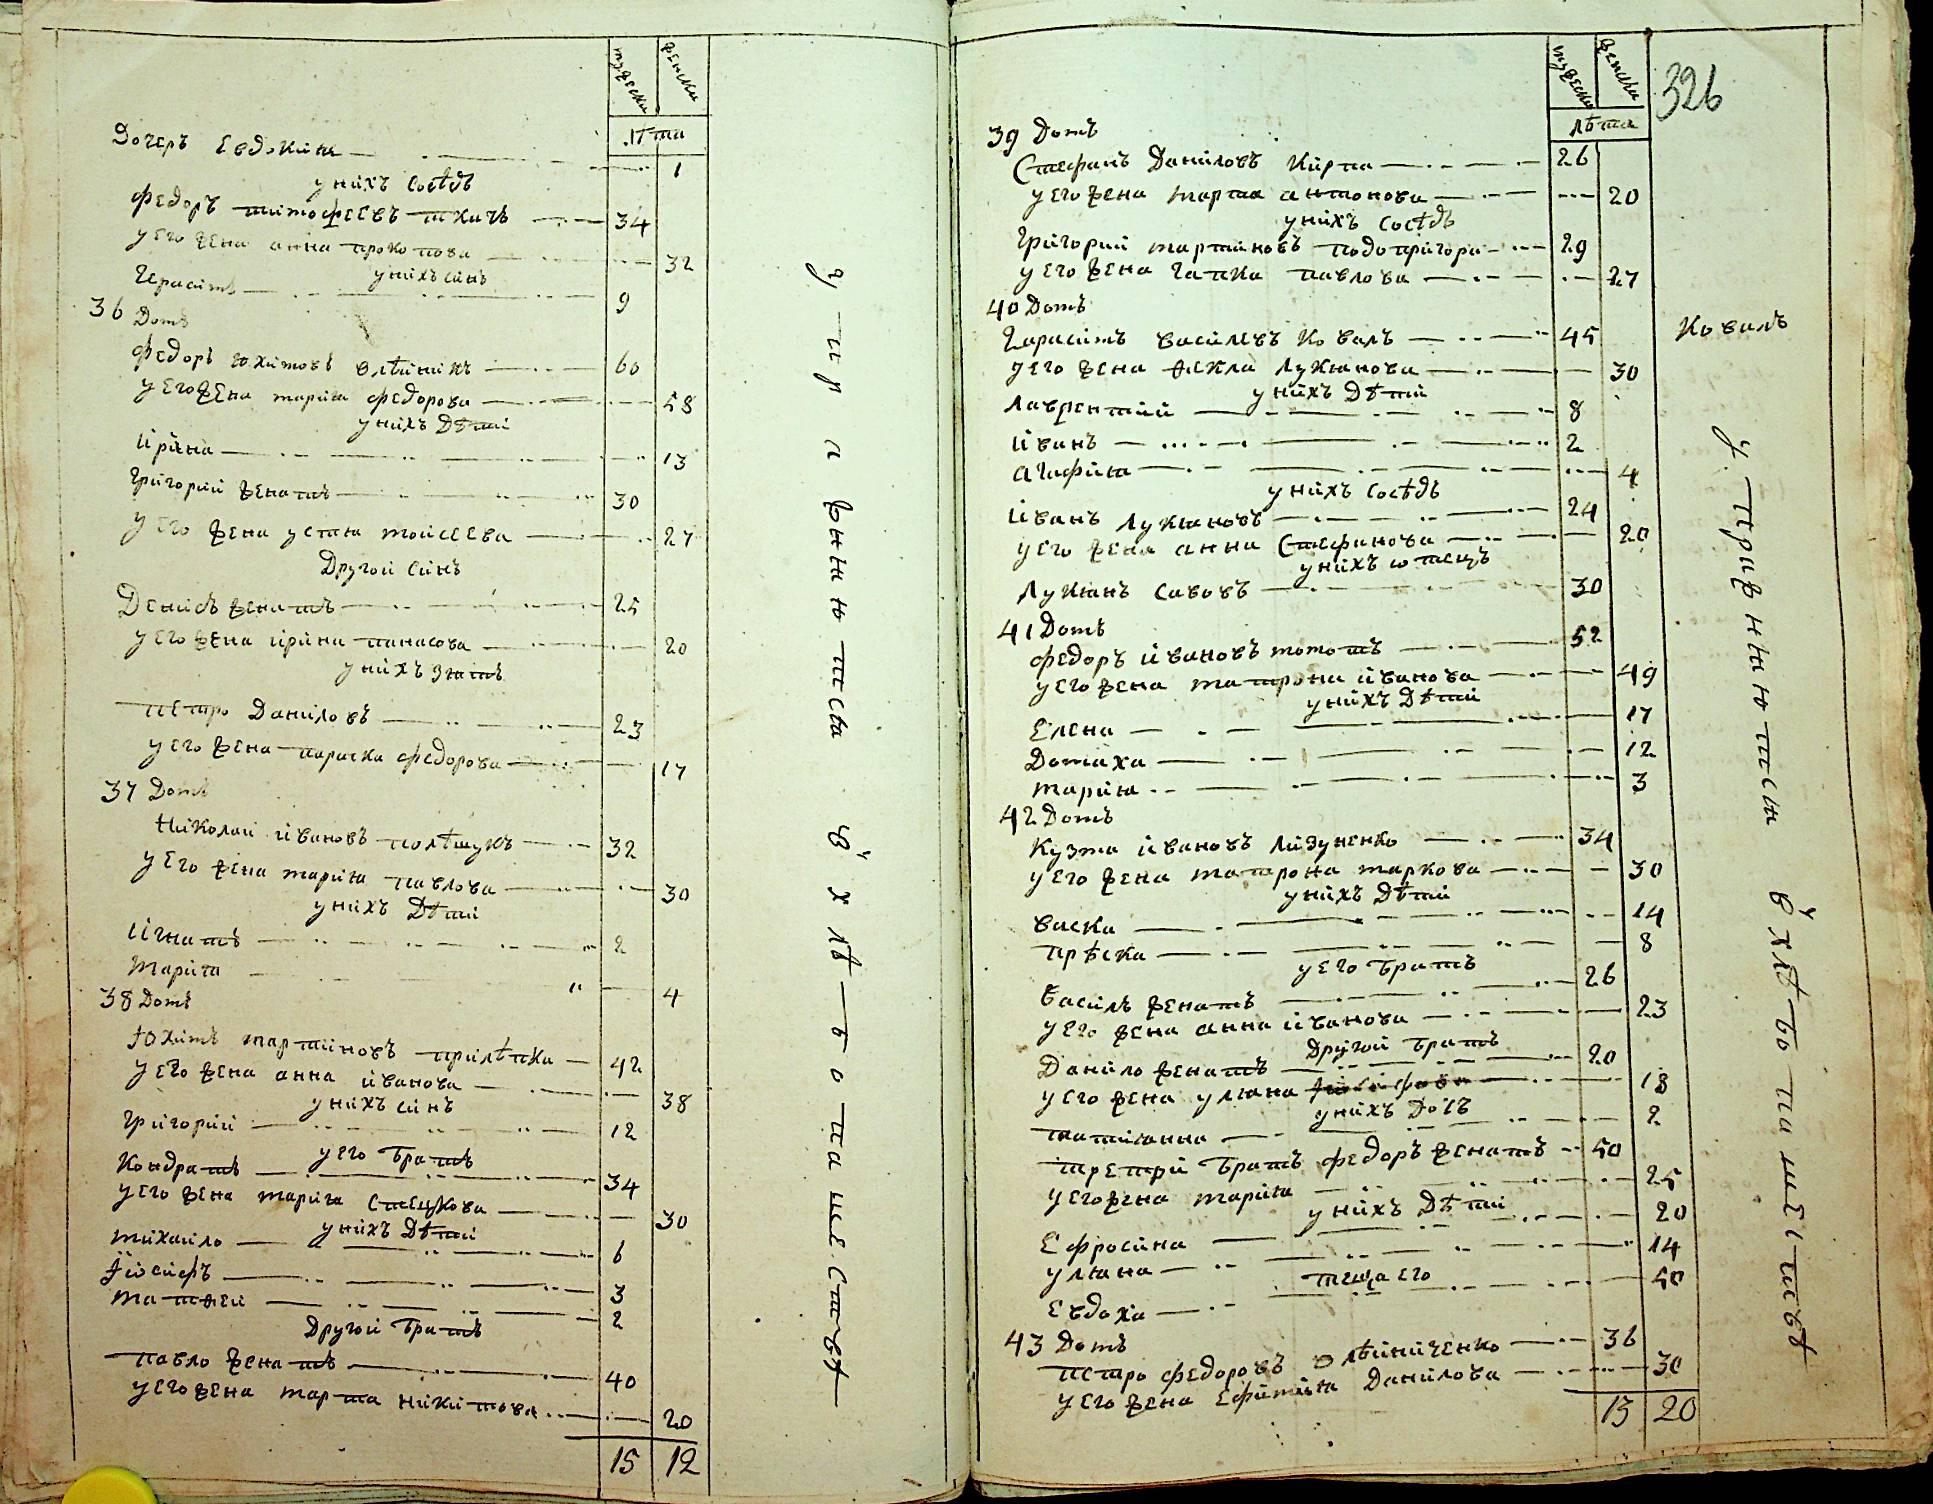 мужески женски
лѣта
Дочеръ Евдокия 1
у нихъ Сосѣдъ
Федоръ тимофеевъ ткачъ 34
у его жена анна прокопова 32
у нихъ синъ
Герасимъ 9
36 Домъ
Федоръ юхимовъ олѣйникъ 60
у его жена мария федорова 58
у нихъ Дѣти
ирина 13
Григорий женатъ 30
у его жена устия моисеева 27
Другой синъ
Денисъ женатъ 25
у его жена ирина панасова 20
у нихъ зять
петро Даниловъ 23
у его жена параска федорова 17
37 Домъ
Николай ивановъ полѣщукъ 32
у его жена мария павлова 30
у нихъ Дѣти
игнатъ 2
мария 4
38 Домъ
Юхимъ мартиновъ прилѣпка 42
у его жена анна иванова 38
у нихъ синъ
Григорий 12
у его братъ
Кондратъ 34
у его жена мария Стецкова 30
у нихъ Дѣти
михайло 6
Иосифъ 3
матѳей 2
Другой братъ
павло женатъ 40
у его жена марта никитова 20
15 12
упражняются в хлѣбопашествѣ
326
мужески женска
лѣта
39 Домъ
Стефанъ Даниловъ Кирпа 26
у его жена марта антонова 20
у нихъ Сосѣдъ
Григорий мартиновъ подопригора 29
у его жена гапка павлова 27
40 Домъ
Гарасимъ василевъ Коваль 45
Коваль
у его жена ѳекла Лукянова 30
у нихъ Дѣти
Лаврентий 8
иванъ 2
агафия 4
у нихъ Сосѣдъ
иванъ Лукяновъ 24
у его жена анна Стефанова 20
у нихъ отецъ
Лукянъ Савовъ 30
41 Домъ
федоръ ивановъ момотъ 52
у его жена матрона иванова 49
у нихъ Дѣти
Елена 17
Домаха 12
мария 3
42 Домъ
Кузма ивановъ Лизуненко 34
у его жена матрона маркова 30
у нихъ Дѣти
васка 14
прѣска 8
у его братъ
василь женатъ 26
у его жена анна иванова 23
Другой братъ
Данило женатъ 20
у его жена уляна 18
у нихъ Дочъ
татиянна 2
третий братъ федоръ женатъ 50
у его жена мария 25
у нихъ Дѣти
Ефросина 20
уляна 14
теща его
Евдоха 50
43 Домъ
петро федоровъ олѣйниченко 36
у его жена Ефимия Данилова 30
13 20
упражняются в хлѣбопашествѣ